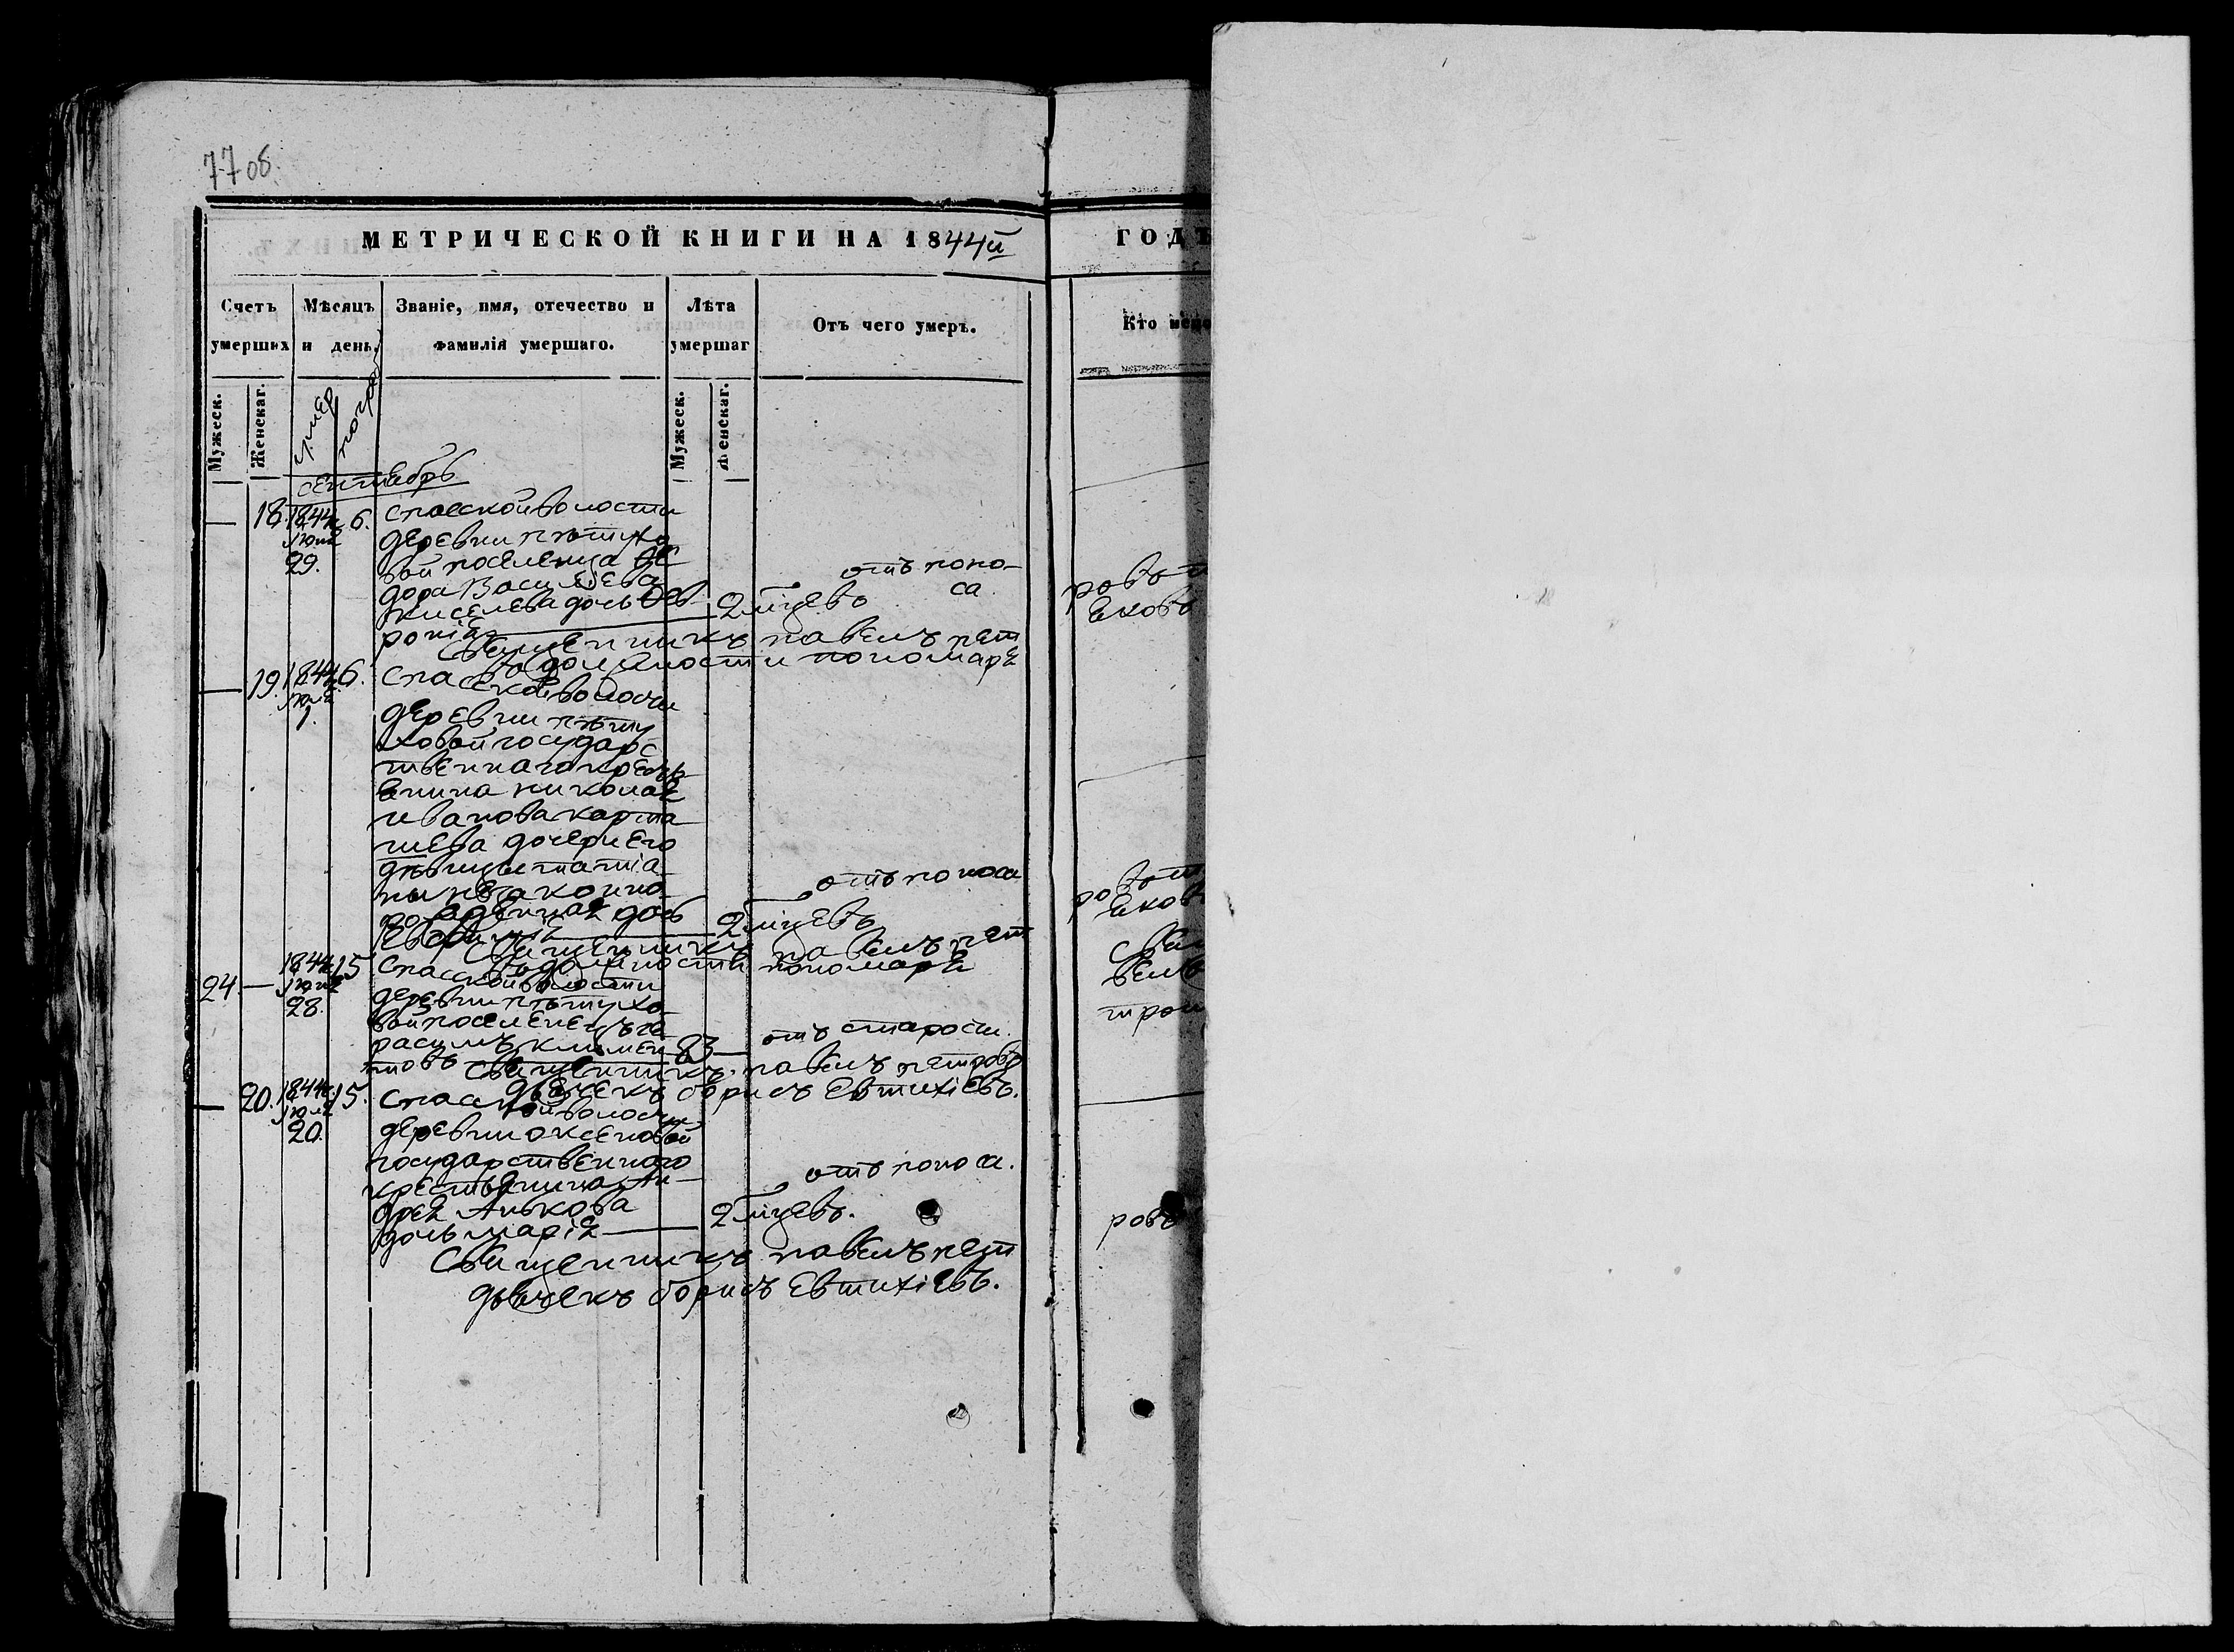 7708
МЕТРИЧЕСКОЙ КНИГИ НА 1844й
ГОДЪ
Счетъ умершихъ
Мѣсяцъ и день.
Званіе, имя, отечество и фамилія умершаго.
Лѣта умершаг
Отъ чего умеръ.
Кто
Мужеск.
Женскаг.
умер
погреб
Мужеск.
Женскаг.
сентябрь
— 18. 1844 6. спаской волости
29. деревни пѣтухо
вой поселенца Ѳе
дора Василева отъ поно-
киселева дочь Фев са.
ронія 2 мѣцевъ
священникъ павелъ пет ровъ
в должности пономаря
— 19. 1844 6. спаской волости
июля 1. деревни пѣту
ховой государс
твеннаго кресть
янина николая
иванова карта
шева дочери его
дѣвицы татіа
ны незаконно отъ поноса
рожденная дочь
2 мѣцевъ
священникъ павелъ пет ровъ
в должности пономаря
24. — 1844 15 спаской волости
28. деревни пѣтухо
вой поселенецъ ге
расимъ климен 83 — отъ старости.
товъ священникъ павелъ петровъ
дьячекъ борисъ Евтихіевъ.
— 20. 1844 15. спаской волости
июля 20. деревни оксеновой
государственнаго
крестьянина Ан отъ поноса.
дрея Анькова
дочь марія 2 мѣцевъ.
Священникъ павелъ пет ровъ
дьячекъ борисъ Евтихіевъ.